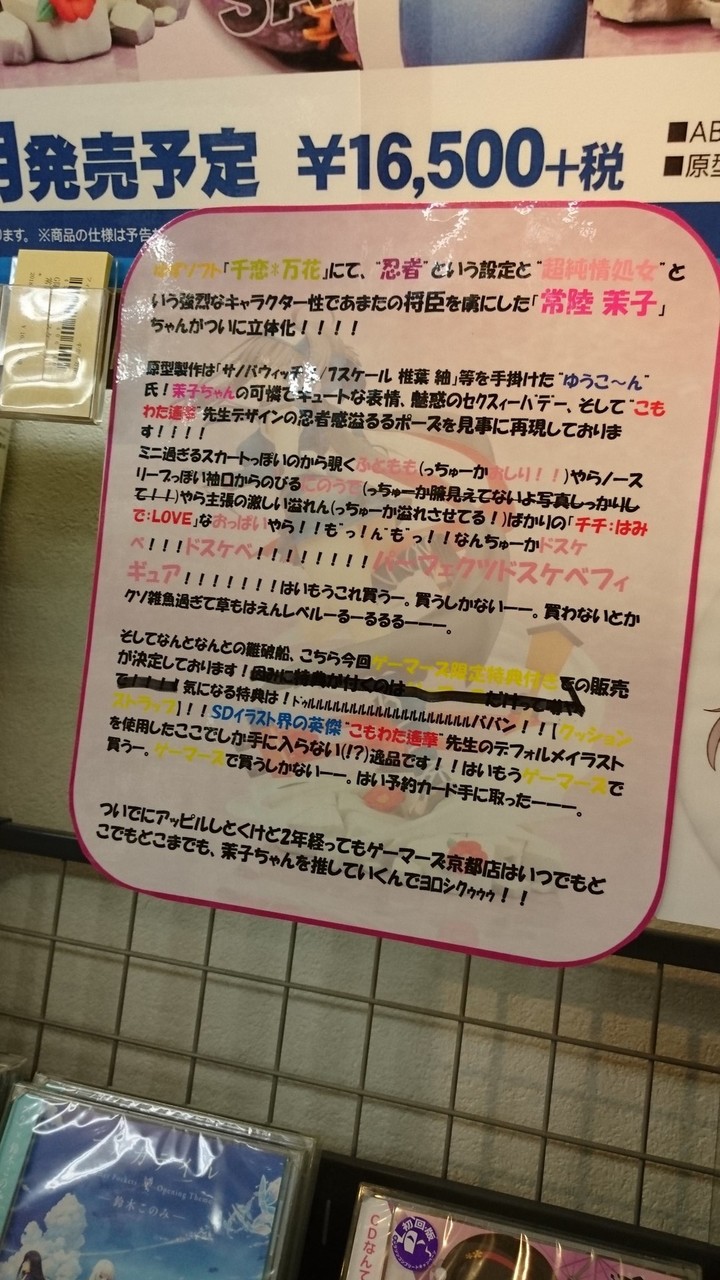 月発売予定 ¥16,500+税
■AB
■原型
ます。※商品の仕様は予告
ゆずソフト「千恋*万花」にて、"忍者"という設定と"超純情処女"と
いう強烈なキャラクター性であまたの将臣を虜にした「常陸 茉子」
ちゃんがついに立体化！！！！
原型製作は「サノバウィッチ 1/7スケール 椎葉 紬」等を手掛けた"ゆうこ〜ん"
氏！茉子ちゃんの可憐でキュートな表情、魅惑のセクスィーバデー、そして"こも
わた遙華"先生デザインの忍者感溢るるポーズを見事に再現しておりま
す！！！！
ミニ過ぎるスカートっぽいのから覗くふともも(っちゅーかおしり！！)やらノース
リーブっぽい袖口からのびるにのうで(っちゅーか腋見えてないよ写真しっかりし
て！！)やら主張の激しい溢れん(っちゅーか溢れさせてる！)ばかりの「チチ:はみ
で:LOVE」なおっぱいやら！！も゛っ！ん゛も゛っ！！なんちゅーかドスケ
ベ！！！ドスケベ！！！！！！！！！パーフェクツドスケベフィ
ギュア！！！！！！！はいもうこれ買うー。買うしかないーー。買わないとか
クソ雑魚過ぎて草もはえんレベルーるーるるるーーー。
そしてなんとなんとの難破船、こちら今回ゲーマーズ限定特典付きでの販売
が決定しております！因みに特典が付くのは
て！！！！気になる特典は！ドゥルルルルルルルルルルルルルルルルルババン！！【クッション
ストラップ】！！SDイラスト界の英傑"こもわた遙華"先生のデフォルメイラスト
を使用したここでしか手に入らない(!?)逸品です！！はいもうゲーマーズで
買うー。ゲーマーズで買うしかないーー。はい予約カード手に取ったーーー。
ついでにアッピルしとくけど2年経ってもゲーマーズ京都店はいつでもど
こでもどこまでも、茉子ちゃんを推していくんでヨロシクゥゥゥ！！
Opening The
鈴木このみ
初回版
CDなんて